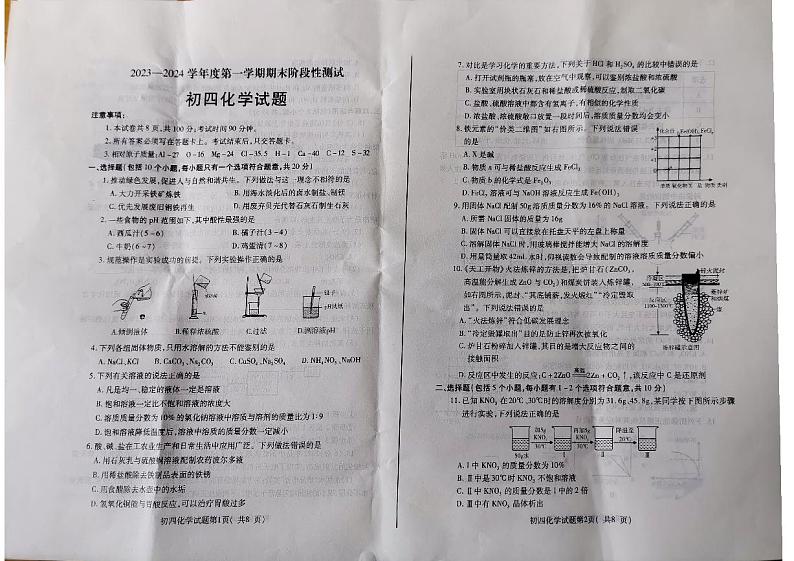 2023—2024学年度第一学期期末阶段性测试
初四化学试题
注意事项：
1.本试卷共8页,共100分;考试时间90分钟。
2.所有答案必须写在答题卡上。考试结束后,只交答题卡。
3.相对原子质量:Al-27 O-16 Mg-24 Cl-35.5 H-1 Ca-40 C-12 S-32
一、选择题(包括10个小题,每小题只有一个选项符合题意,共20分)
1.推动绿色发展,促进人与自然和谐共生。下列做法与这一理念不相符的是
A.大力开采铁矿炼铁 B.用海水淡化后的卤水制盐、制镁
C.优先发展废旧钢铁再生 D.用废弃贝壳代替石灰石制生石灰
2.一些食物的pH范围如下,其中酸性最强的是
A.西瓜汁(5~6) B.橘子汁(3~4)
C.牛奶(6~7) D.鸡蛋清(7~8)
3.规范操作是实验成功的前提。下列实验操作正确的是
A.倾倒液体 B.稀释浓硫酸 C.过滤 D.测溶液pH
4.下列各组固体物质,只用水溶解的方法不能鉴别的是
A.NaCl、KCl B.CaCO₃、Na₂CO₃ C.CuSO₄、Na₂SO₄ D.NH₄NO₃、NaOH
5.下列有关溶液的说法正确的是
A.凡是均一、稳定的液体一定是溶液
B.饱和溶液一定比不饱和溶液的浓度大
C.溶质质量分数为10%的氯化钠溶液中溶质与溶剂的质量比为1:9
D.饱和溶液降低温度后,溶液中溶质的质量分数一定减小
6.酸、碱、盐在工农业生产和日常生活中应用广泛。下列做法错误的是
A.用石灰乳与硫酸铜溶液配制农药波尔多液
B.用稀盐酸除去铁制品表面的铁锈
C.用食醋除去水壶中的水垢
D.氢氧化铜能与胃酸反应,可以治疗胃酸过多
初四化学试题第1页( 共8 页)
7.对比是学习化学的重要方法,下列关于HCl和H₂SO₄的比较中错误的是
A.打开试剂瓶的瓶塞,放在空气中观察,可以鉴别浓盐酸和浓硫酸
B.实验室用块状石灰石和稀盐酸或稀硫酸反应,制取二氧化碳
C.盐酸、硫酸溶液中都含有氢离子,有相似的化学性质
D.浓盐酸、浓硫酸敞口放置一段时间后,溶质质量分数均会变小
8.铁元素的"价类二维图"如右图所示。下列说法错误
的是
A.X是碱
B.物质a可与稀盐酸反应生成FeCl₂
C.物质b的化学式是Fe₂O₃
D.FeCl₃溶液可与NaOH溶液反应生成Fe(OH)₃
9.用固体NaCl配制50g溶质质量分数为16%的NaCl溶液。下列说法正确的是
A.所需NaCl固体的质量为16g
B.固体NaCl可以直接放在托盘天平的左盘上称量
C.溶解固体NaCl时,用玻璃棒搅拌能增大NaCl的溶解度
D.用量筒量取42mL水时,仰视读数会导致配制的溶液溶质质量分数偏小
10.《天工开物》火法炼锌的方法是,把炉甘石(ZnCO₃,
高温能分解生成ZnO与CO₂)和煤炭饼装入炼锌罐,
如右图所示,泥封、"其底铺薪,发火煅红""冷定毁取
出"。下列说法错误的是
A."火法炼锌"符合低碳发展理念
B."冷定毁罐取出"目的是防止锌再次被氧化
C.炉甘石粉碎加入锌罐,其目的是增大反应物之间的
接触面积
炼锌罐示意图
D.反应区中发生的反应:C+2ZnO高温2Zn+CO₂↑,该反应中C是还原剂
二、选择题(包括5个小题,每小题有1~2个选项符合题意,共10分)
11.已知KNO₃在20℃、30℃时的溶解度分别为31.6g、45.8g,某同学按下图所示步骤
进行实验,下列说法正确的是
加5g KNO₃ 30℃ 再加5g KNO₃ 30℃ 降温至 20℃
50g水 Ⅰ Ⅱ Ⅲ
A.Ⅰ中KNO₃的质量分数为10%
B.Ⅱ中是30℃时KNO₃不饱和溶液
C.Ⅱ中KNO₃的质量分数是Ⅰ中的2倍
D.Ⅲ中有KNO₃晶体析出
初四化学试题第2页( 共8 页)